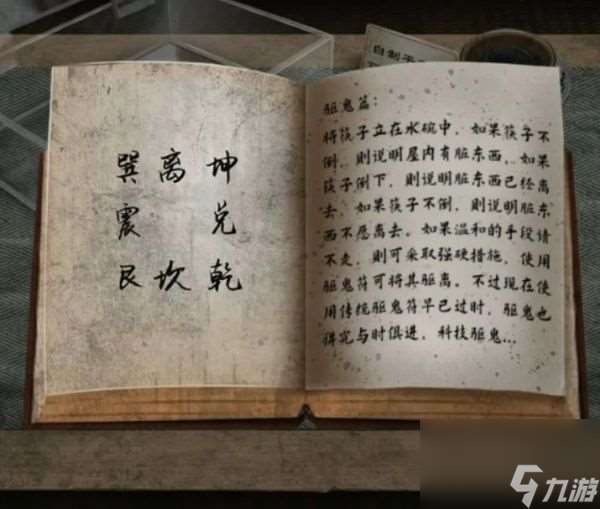 自制平
巽 离 坤
震 兑
艮 坎 乾
驱鬼篇：
将筷子立在水碗中，如果筷子不
倒，则说明屋内有脏东西，如果
筷子倒下，则说明脏东西已经离
去，如果筷子不倒，则说明脏东
西不愿离去。如果温和的手段请
不走，则可采取强硬措施，使用
驱鬼符可将其驱离。不过现在使
用传统驱鬼符早已过时，驱鬼也
得究与时俱进，科技驱鬼...
九游